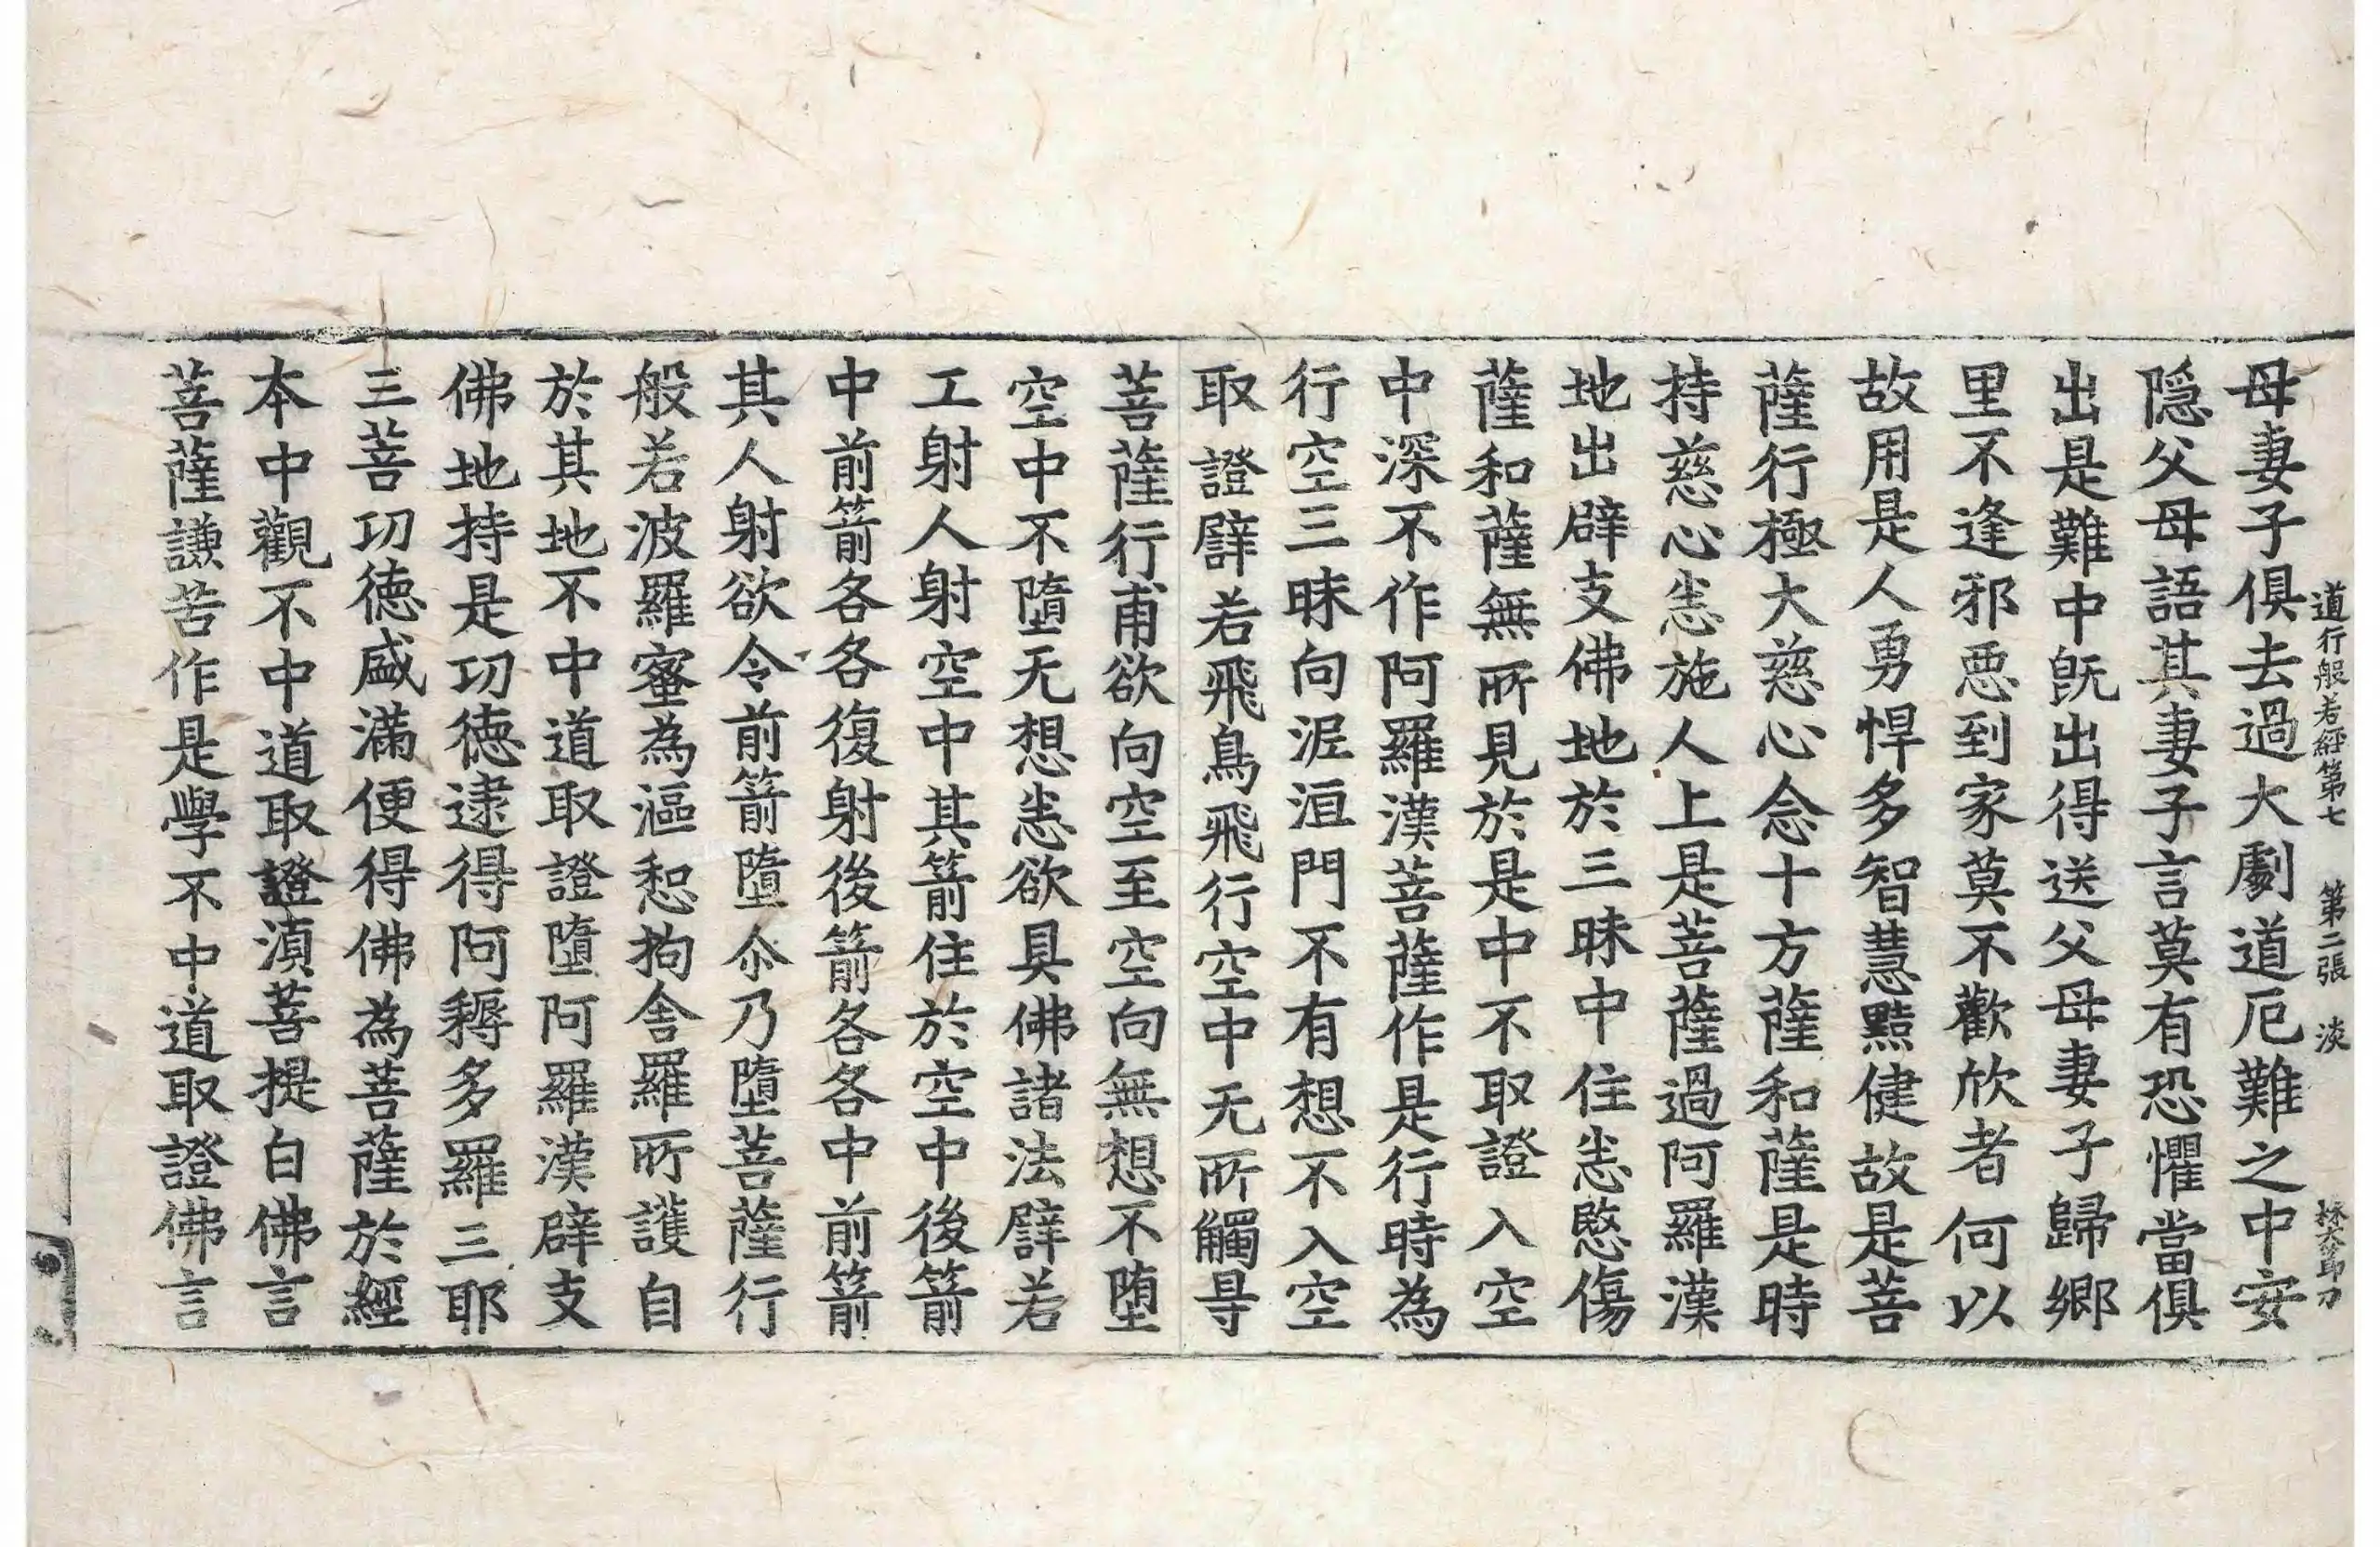 道行般若經第七　第二張　淡
母妻子俱去過大劇道厄難之中安
隱父母語其妻子言莫有恐懼當俱
出是難中旣出得送父母妻子歸鄉
里不逢邪惡到家莫不歡欣者何以
故用是人勇悍多智慧黠健故是菩
薩行極大慈心念十方薩和薩是時
持慈心悉施人上是菩薩過阿羅漢
地出辟支佛地於三昧中住悉愍傷
薩和薩無所見於是中不取證入空
中深不作阿羅漢菩薩作是行時為
行空三昧向泥洹門不有想不入空
取證譬若飛鳥飛行空中无所觸㝵
菩薩行甫欲向空至空向無想不墮
空中不墮无想悉欲具佛諸法譬若
工射人射空中其箭住於空中後箭
中前箭各各復射後箭各各中前箭
其人射欲令前箭墮尒乃墮菩薩行
般若波羅蜜為漚惒拘舍羅所護自
於其地不中道取證墮阿羅漢辟支
佛地持是功德逮得阿耨多羅三耶
三菩功德盛滿便得佛為菩薩於經
本中觀不中道取證湏菩提白佛言
菩薩謙苦作是學不中道取證佛言